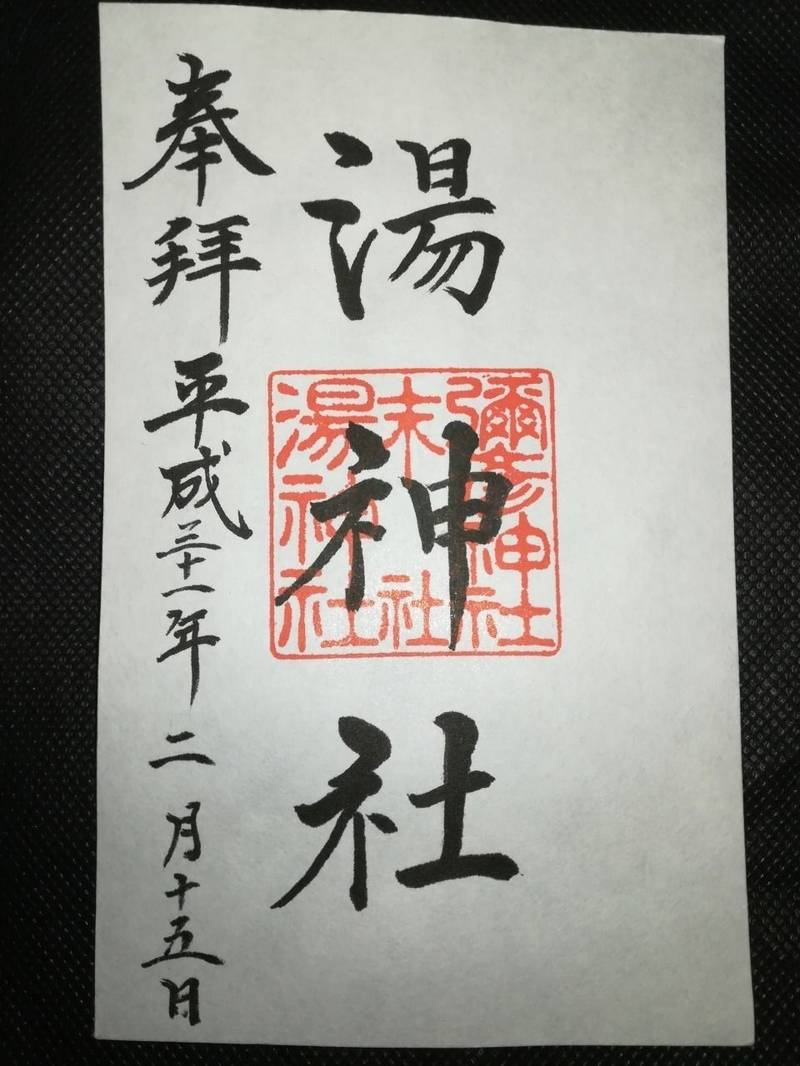 湯神社
彌彦神社
末社
湯神社
奉拜 平成三十一年 二月十五日